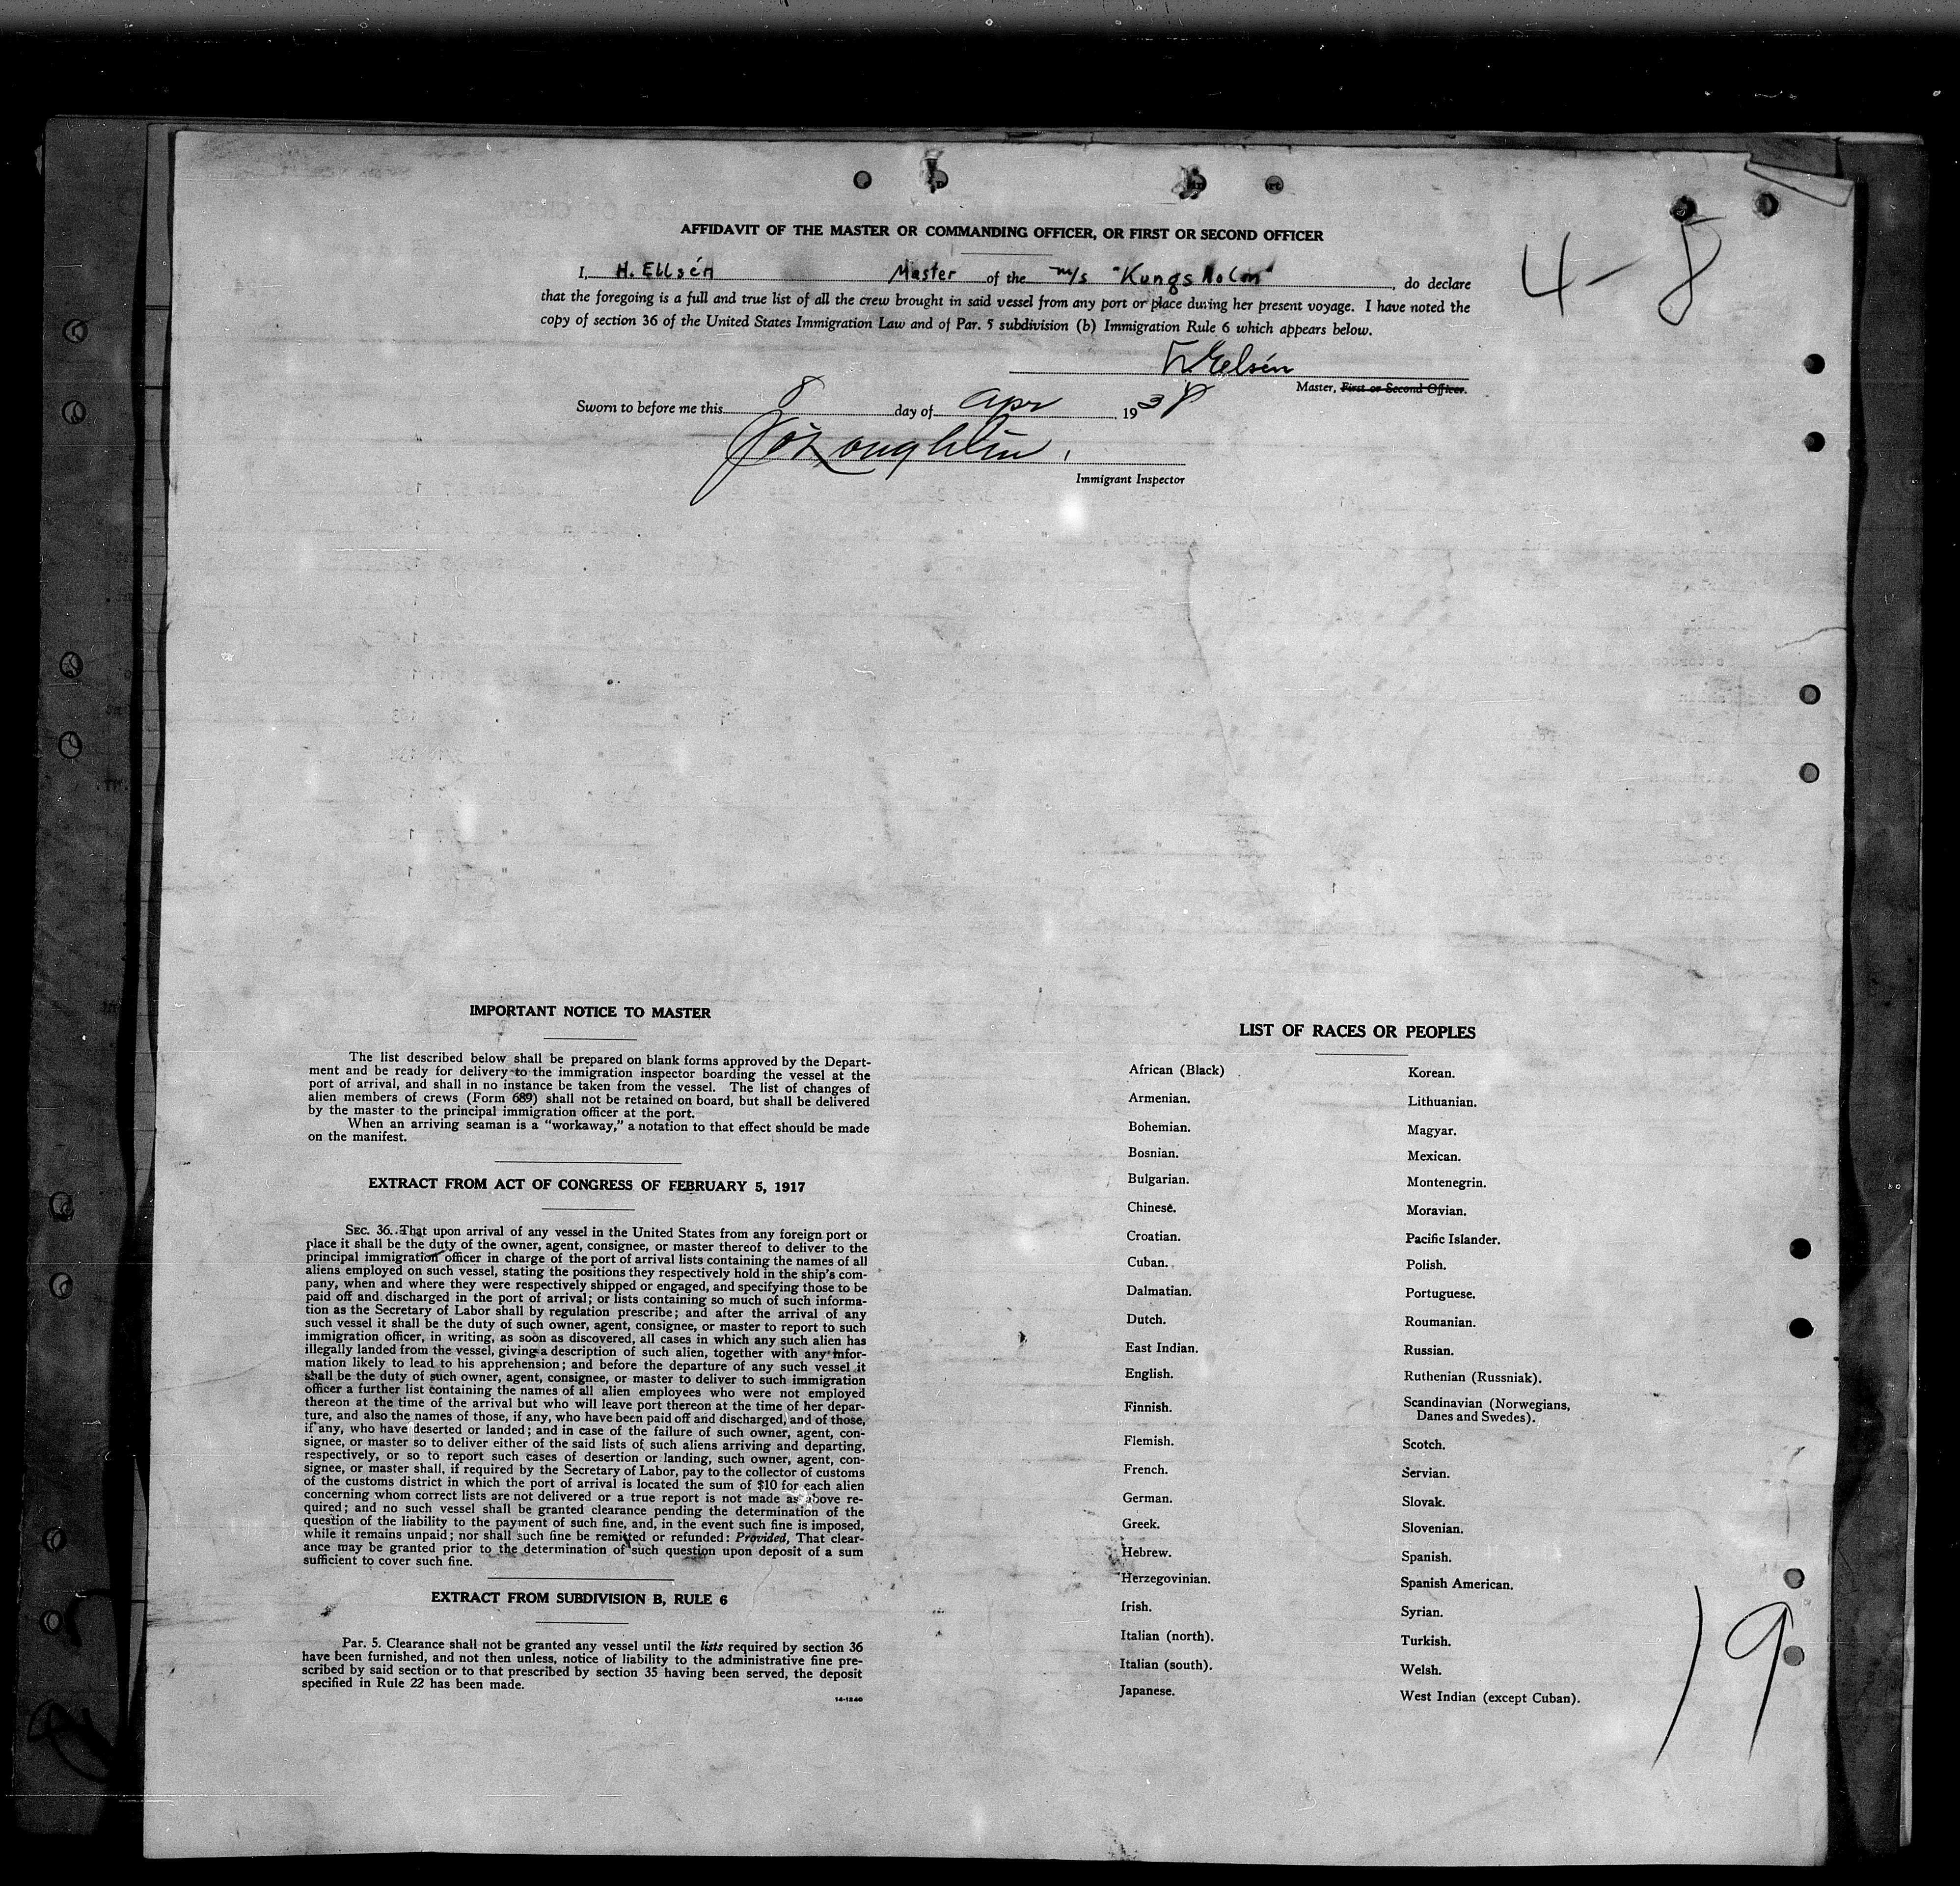 AFFIDAVIT OF THE MASTER OR COMMANDING OFFICER, OR FIRST OR SECOND OFFICER
4-8
I, H. Ellsén Master of the m/s "Kungsholm", do declare
that the foregoing is a full and true list of all the crew brought in said vessel from any port or place during her present voyage. I have noted the
copy of section 36 of the United States Immigration Law and of Par. 5 subdivision (b) Immigration Rule 6 which appears below.
Master, First or Second Officer.
Sworn to before me this 8 day of Apr 1938
Immigrant Inspector
IMPORTANT NOTICE TO MASTER
The list described below shall be prepared on blank forms approved by the Depart-
ment and be ready for delivery to the immigration inspector boarding the vessel at the
port of arrival, and shall in no instance be taken from the vessel. The list of changes of
alien members of crews (Form 689) shall not be retained on board, but shall be delivered
by the master to the principal immigration officer at the port.
When an arriving seaman is a "workaway," a notation to that effect should be made
on the manifest.
EXTRACT FROM ACT OF CONGRESS OF FEBRUARY 5, 1917
SEC. 36. That upon arrival of any vessel in the United States from any foreign port or
place it shall be the duty of the owner, agent, consignee, or master thereof to deliver to the
principal immigration officer in charge of the port of arrival lists containing the names of all
aliens employed on such vessel, stating the positions they respectively hold in the ship's com-
pany, when and where they were respectively shipped or engaged, and specifying those to be
paid off and discharged in the port of arrival; or lists containing so much of such informa-
tion as the Secretary of Labor shall by regulation prescribe; and after the arrival of any
such vessel it shall be the duty of such owner, agent, consignee, or master to report to such
immigration officer, in writing, as soon as discovered, all cases in which any such alien has
illegally landed from the vessel, giving a description of such alien, together with any infor-
mation likely to lead to his apprehension; and before the departure of any such vessel it
shall be the duty of such owner, agent, consignee, or master to deliver to such immigration
officer a further list containing the names of all alien employees who were not employed
thereon at the time of the arrival but who will leave port thereon at the time of her depar-
ture, and also the names of those, if any, who have been paid off and discharged, and of those,
if any, who have deserted or landed; and in case of the failure of such owner, agent, con-
signee, or master so to deliver either of the said lists of such aliens arriving and departing,
respectively, or so to report such cases of desertion or landing, such owner, agent, con-
signee, or master shall, if required by the Secretary of Labor, pay to the collector of customs
of the customs district in which the port of arrival is located the sum of $10 for each alien
concerning whom correct lists are not delivered or a true report is not made as above re-
quired; and no such vessel shall be granted clearance pending the determination of the
question of the liability to the payment of such fine, and, in the event such fine is imposed,
while it remains unpaid; nor shall such fine be remitted or refunded: Provided, That clear-
ance may be granted prior to the determination of such question upon deposit of a sum
sufficient to cover such fine.
EXTRACT FROM SUBDIVISION B, RULE 6
Par. 5. Clearance shall not be granted any vessel until the lists required by section 36
have been furnished, and not then unless, notice of liability to the administrative fine pre-
scribed by said section or to that prescribed by section 35 having been served, the deposit
specified in Rule 22 has been made.
14-1240
LIST OF RACES OR PEOPLES
African (Black)
Armenian.
Bohemian.
Bosnian.
Bulgarian.
Chinese.
Croatian.
Cuban.
Dalmatian.
Dutch.
East Indian.
English.
Finnish.
Flemish.
French.
German.
Greek.
Hebrew.
Herzegovinian.
Irish.
Italian (north).
Italian (south).
Japanese.
Korean.
Lithuanian.
Magyar.
Mexican.
Montenegrin.
Moravian.
Pacific Islander.
Polish.
Portuguese.
Roumanian.
Russian.
Ruthenian (Russniak).
Scandinavian (Norwegians,
Danes and Swedes).
Scotch.
Servian.
Slovak.
Slovenian.
Spanish.
Spanish American.
Syrian.
Turkish.
Welsh.
West Indian (except Cuban).
19